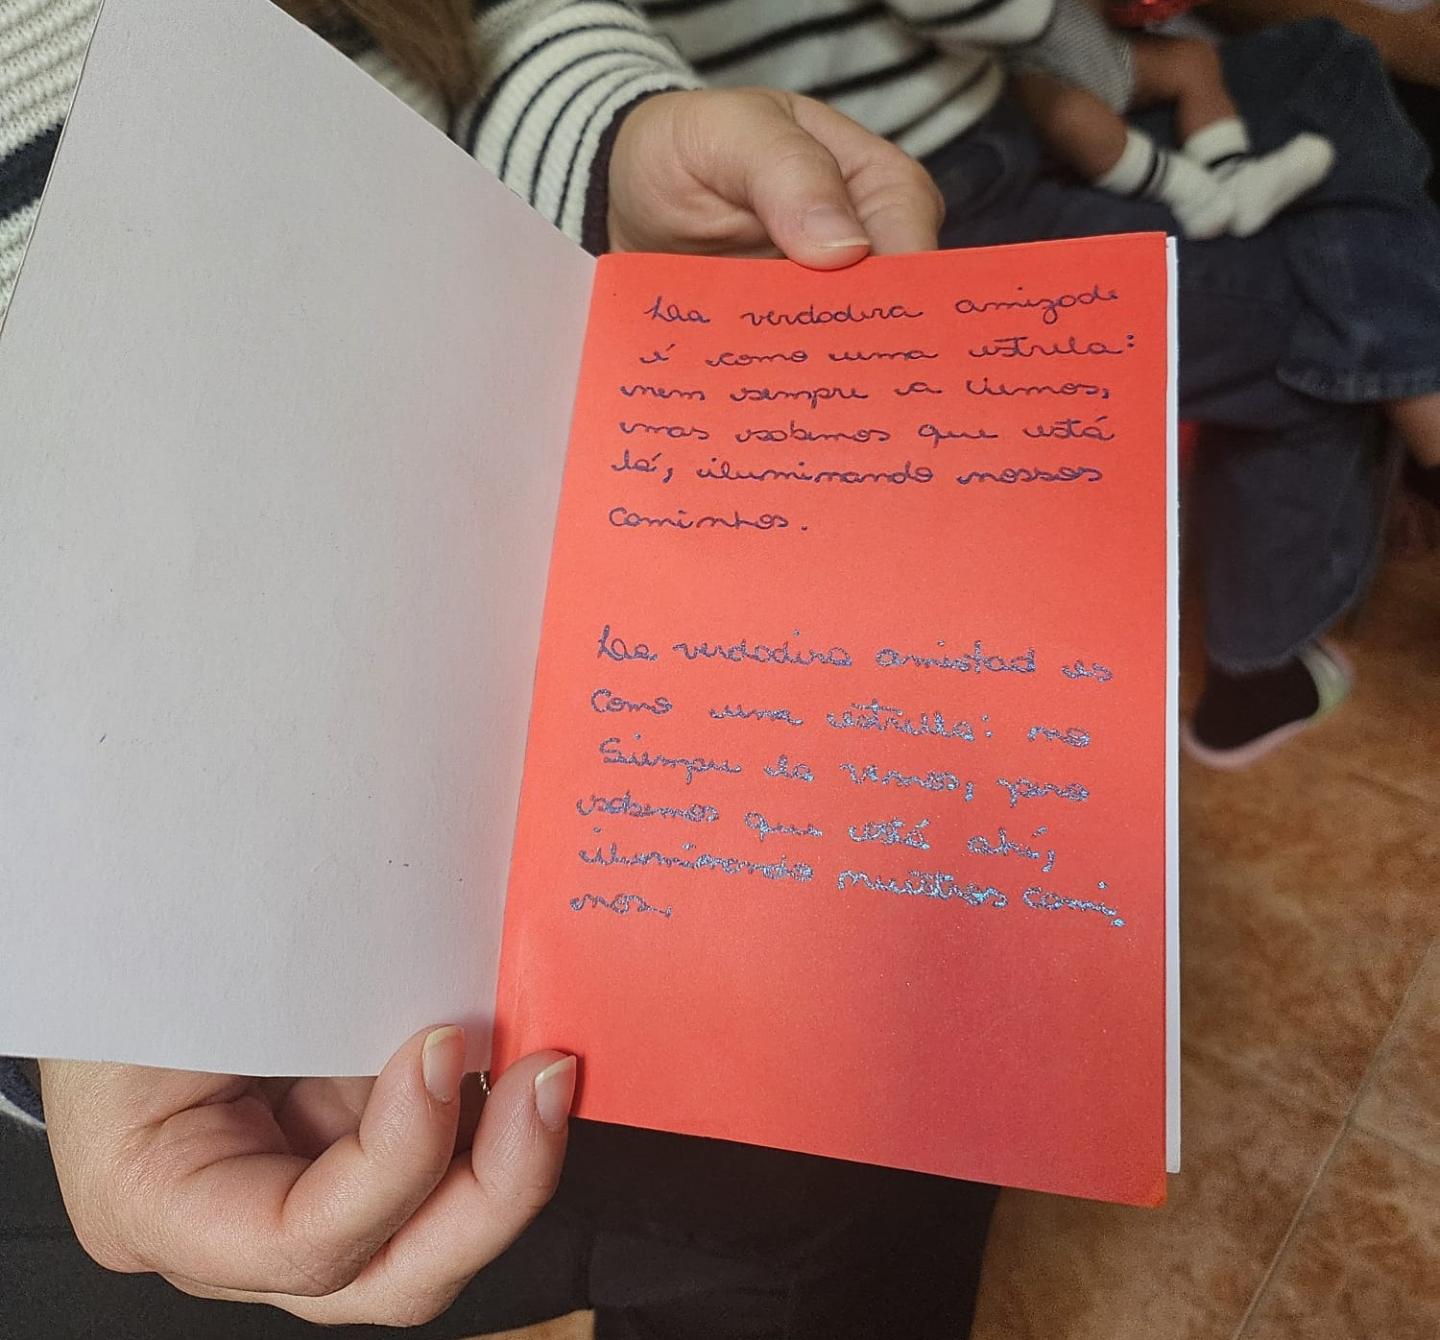 La verdadera amizade
é como uma estrela:
nem sempre a vemos,
mas sabemos que está
lá, iluminando nossos
caminhos.
La verdadera amistad es
como una estrella: no
Siempre la vemos, pero
sabemos que está ahí,
iluminando nuestros cami
nos.